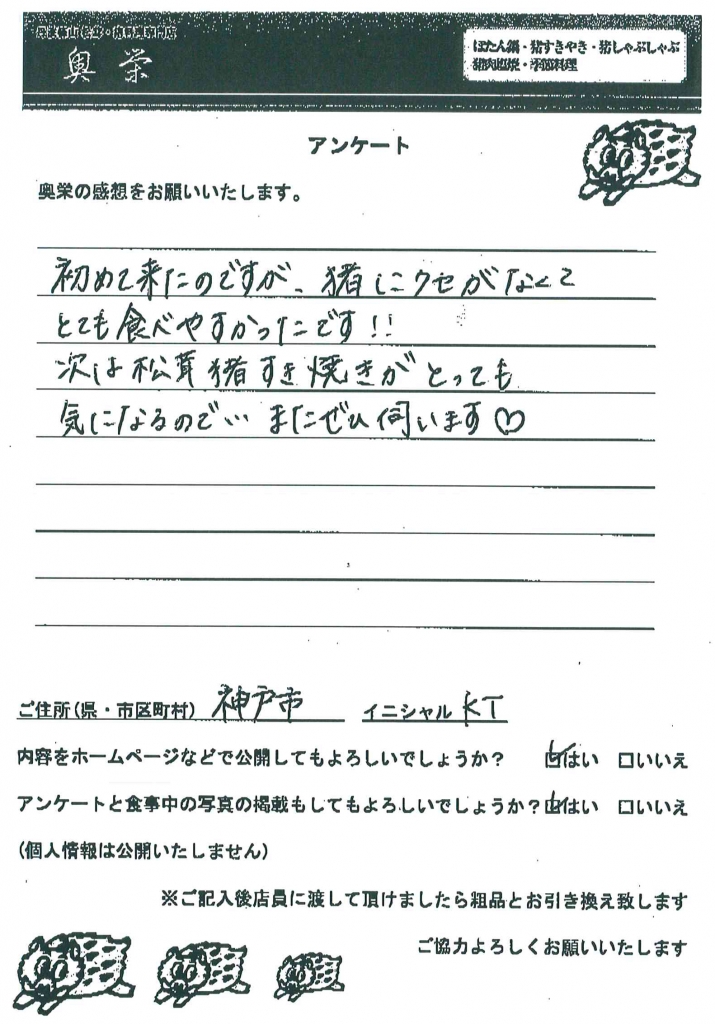 丹波篠山 松茸・猪料理専門店
奥栄
ぼたん鍋・猪すきやき・猪しゃぶしゃぶ
猪肉塩焼・季節料理
アンケート
奥栄の感想をお願いいたします。
初めて来たのですが、猪にクセがなくて
とても食べやすかったです!!
次は松茸猪すき焼きがとっても
気になるので… またぜひ伺います♡
ご住所(県・市区町村) 神戸市 イニシャル KT
内容をホームページなどで公開してもよろしいでしょうか? ☑はい □いいえ
アンケートと食事中の写真の掲載もしてもよろしいでしょうか? ☑はい □いいえ
(個人情報は公開いたしません)
※ご記入後店員に渡して頂けましたら粗品とお引き換え致します
ご協力よろしくお願いいたします